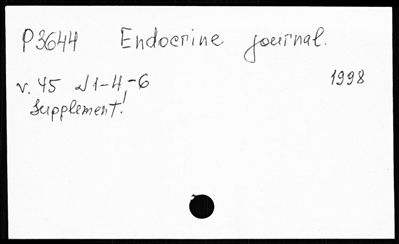 P3644 Endocrine journal.
v. 45 № 1-4,-6 1998
Supplement!